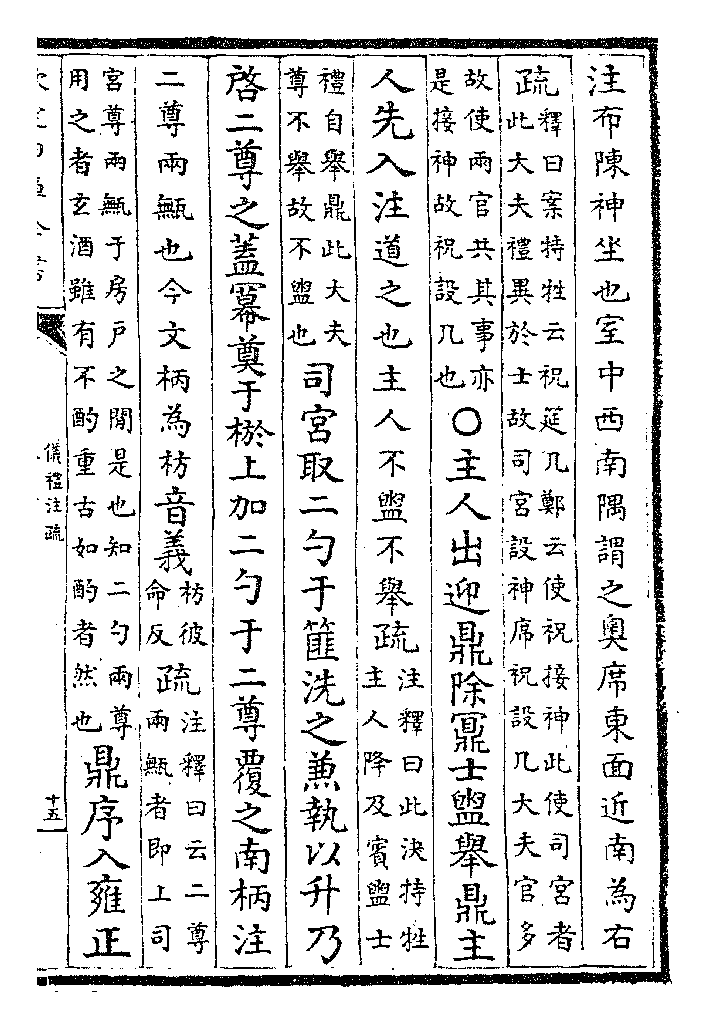 注布陳神坐也室中西南隅謂之奧席東面近南為右
疏釋曰案特牲云祝筵几鄭云使祝接神此使司宮者此大夫禮異於士故司宮設神席祝設几大夫官多
故使兩官共其事亦是接神故祝設几也〇主人出迎鼎除鼏士盥舉鼎主
人先入注道之也主人不盥不舉疏注釋曰此決特牲主人降及賓盥士
禮自舉鼎此大夫尊不舉故不盥也司宮取二勺于篚洗之兼執以升乃
啓二尊之蓋冪奠于棜上加二勺于二尊覆之南柄注
二尊兩甒也今文柄為枋音義枋彼命反疏注釋曰云二尊兩甒者即上司
宮尊兩甒于房戶之閒是也知二勺兩尊用之者玄酒雖有不酌重古如酌者然也鼎序入雍正
儀禮注疏
十五